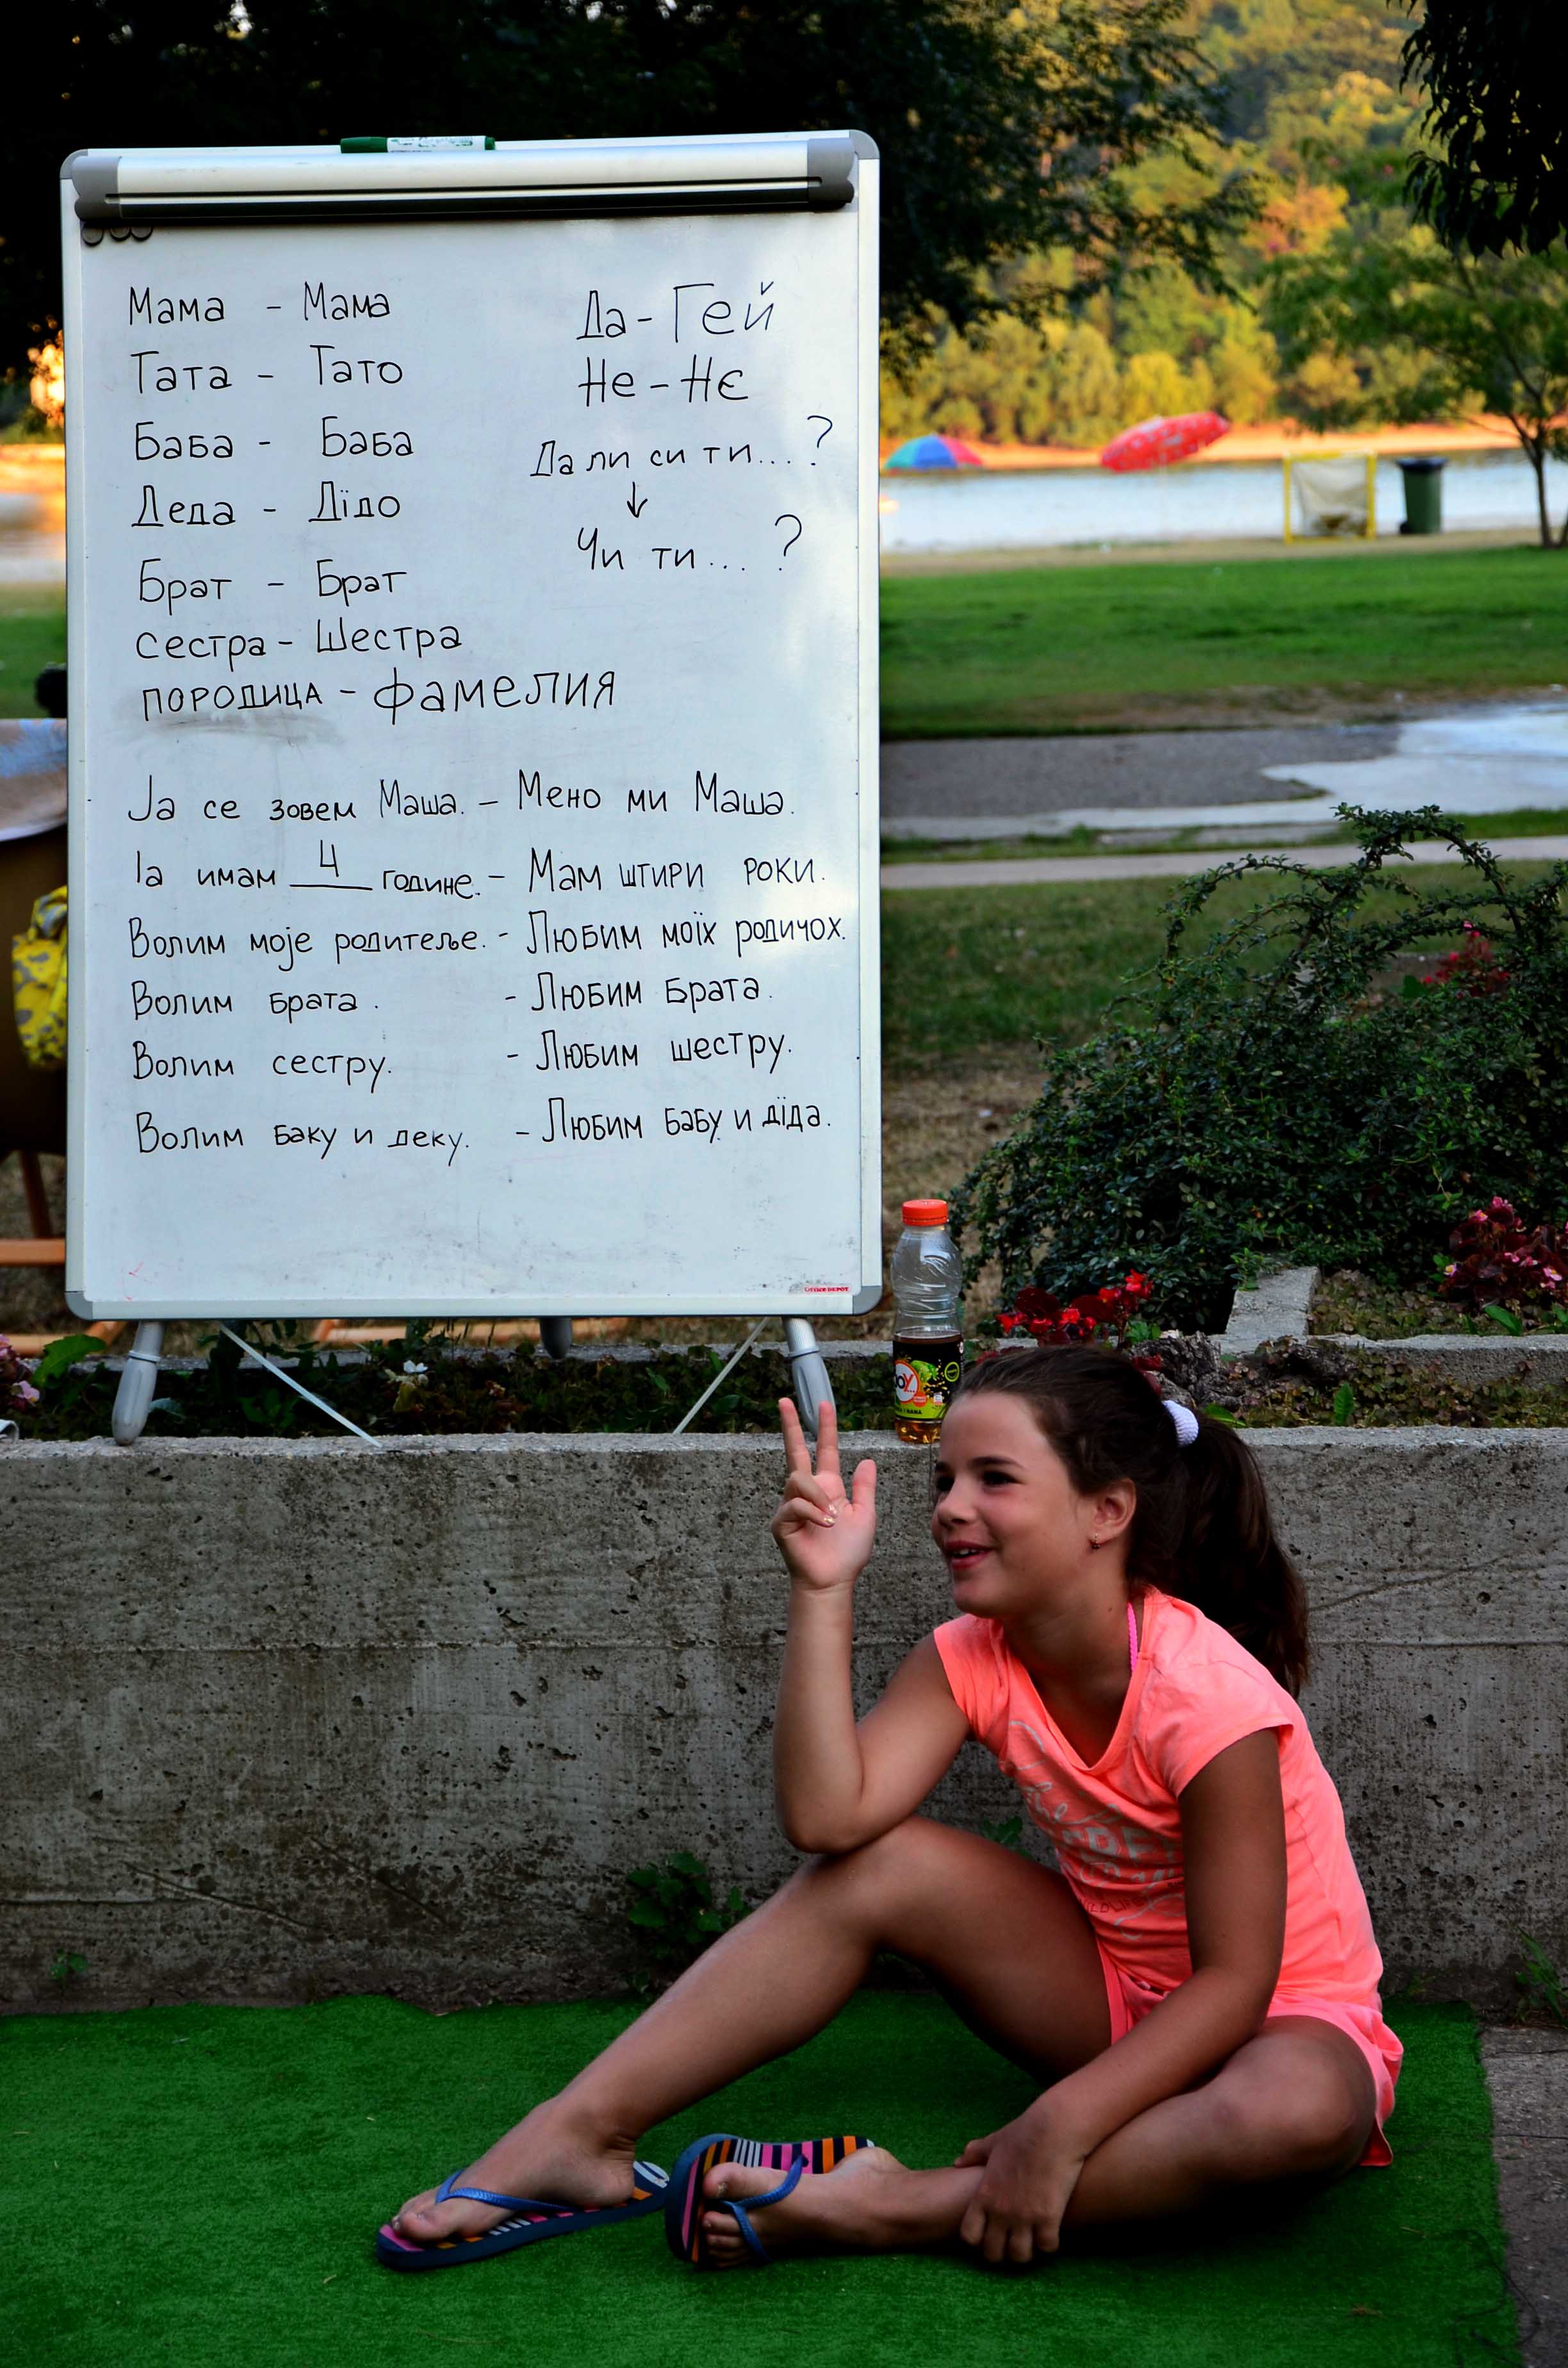 Мама - Мама
Тата - Тато
Баба - Баба
Деда - Дїдо
Брат - Брат
Сестра - Шестра
ПОРОДИЦА - ФАМЕЛИЯ
Да - Гей
Не - Нє
Да ли си ти...?
↓
Чи ти...?
Ја се зовем Маша. - Мено ми Маша.
Ја имам 4 године. - Мам штири роки.
Волим моје родитеље. - Любим моїх родичох.
Волим брата. - Любим брата.
Волим сестру. - Любим шестру.
Волим баку и деку. - Любим бабу и дїда.
Office DEPOT